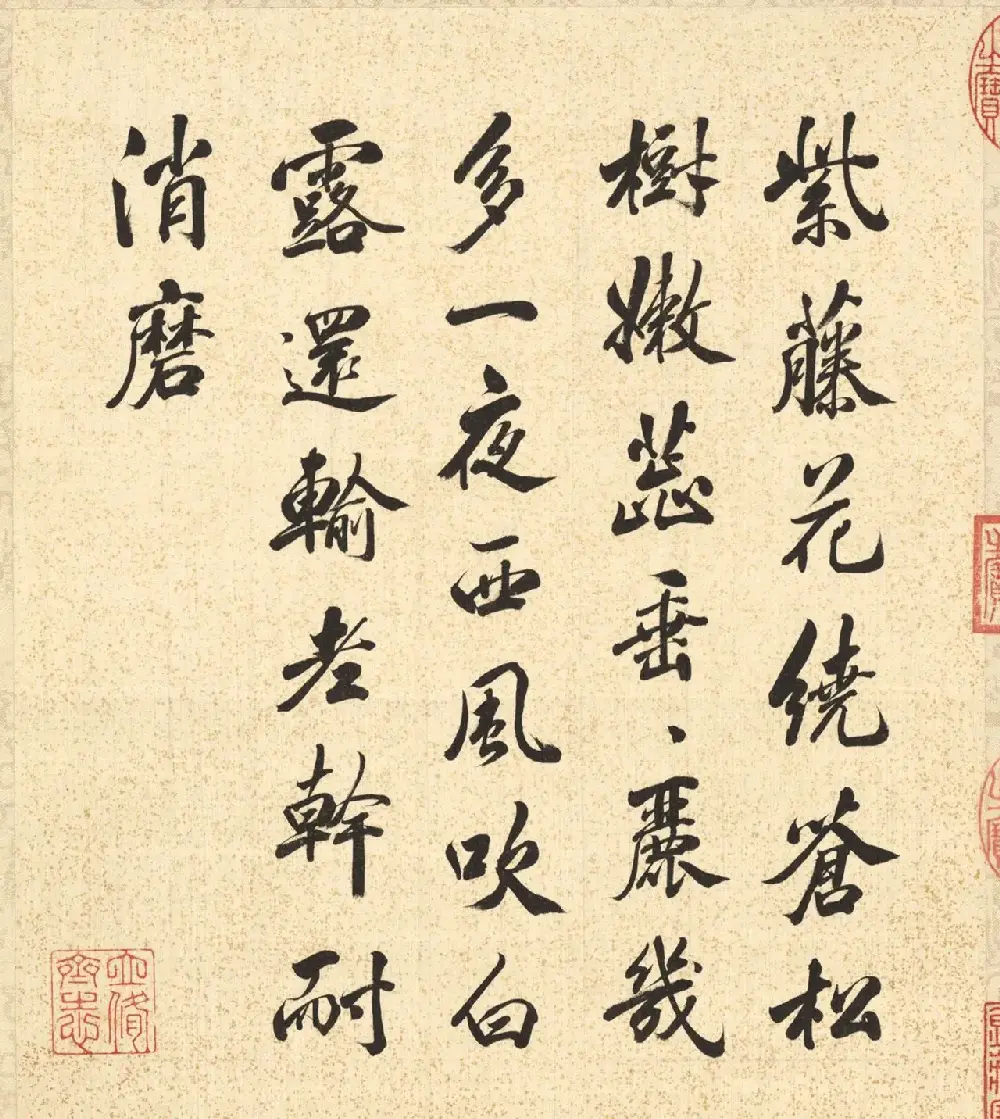 紫藤花繞蒼松
樹嫩蕋垂、麗幾
多一夜西風吹白
露還輸老幹耐
消磨